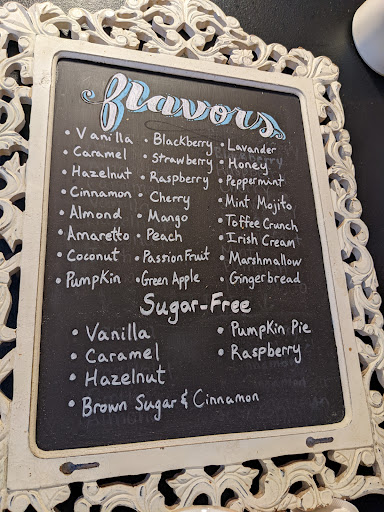 flavors
• Vanilla
• Caramel
• Hazelnut
• Cinnamon
• Almond
• Amaretto
• Coconut
• Pumpkin
• Blackberry
• Strawberry
• Raspberry
• Cherry
• Mango
• Peach
• Passion Fruit
• Green Apple
• Lavander
• Honey
• Peppermint
• Mint Mojito
• Toffee Crunch
• Irish Cream
• Marshmallow
• Gingerbread
Sugar-Free
• Vanilla
• Caramel
• Hazelnut
• Brown Sugar & Cinnamon
• Pumpkin Pie
• Raspberry